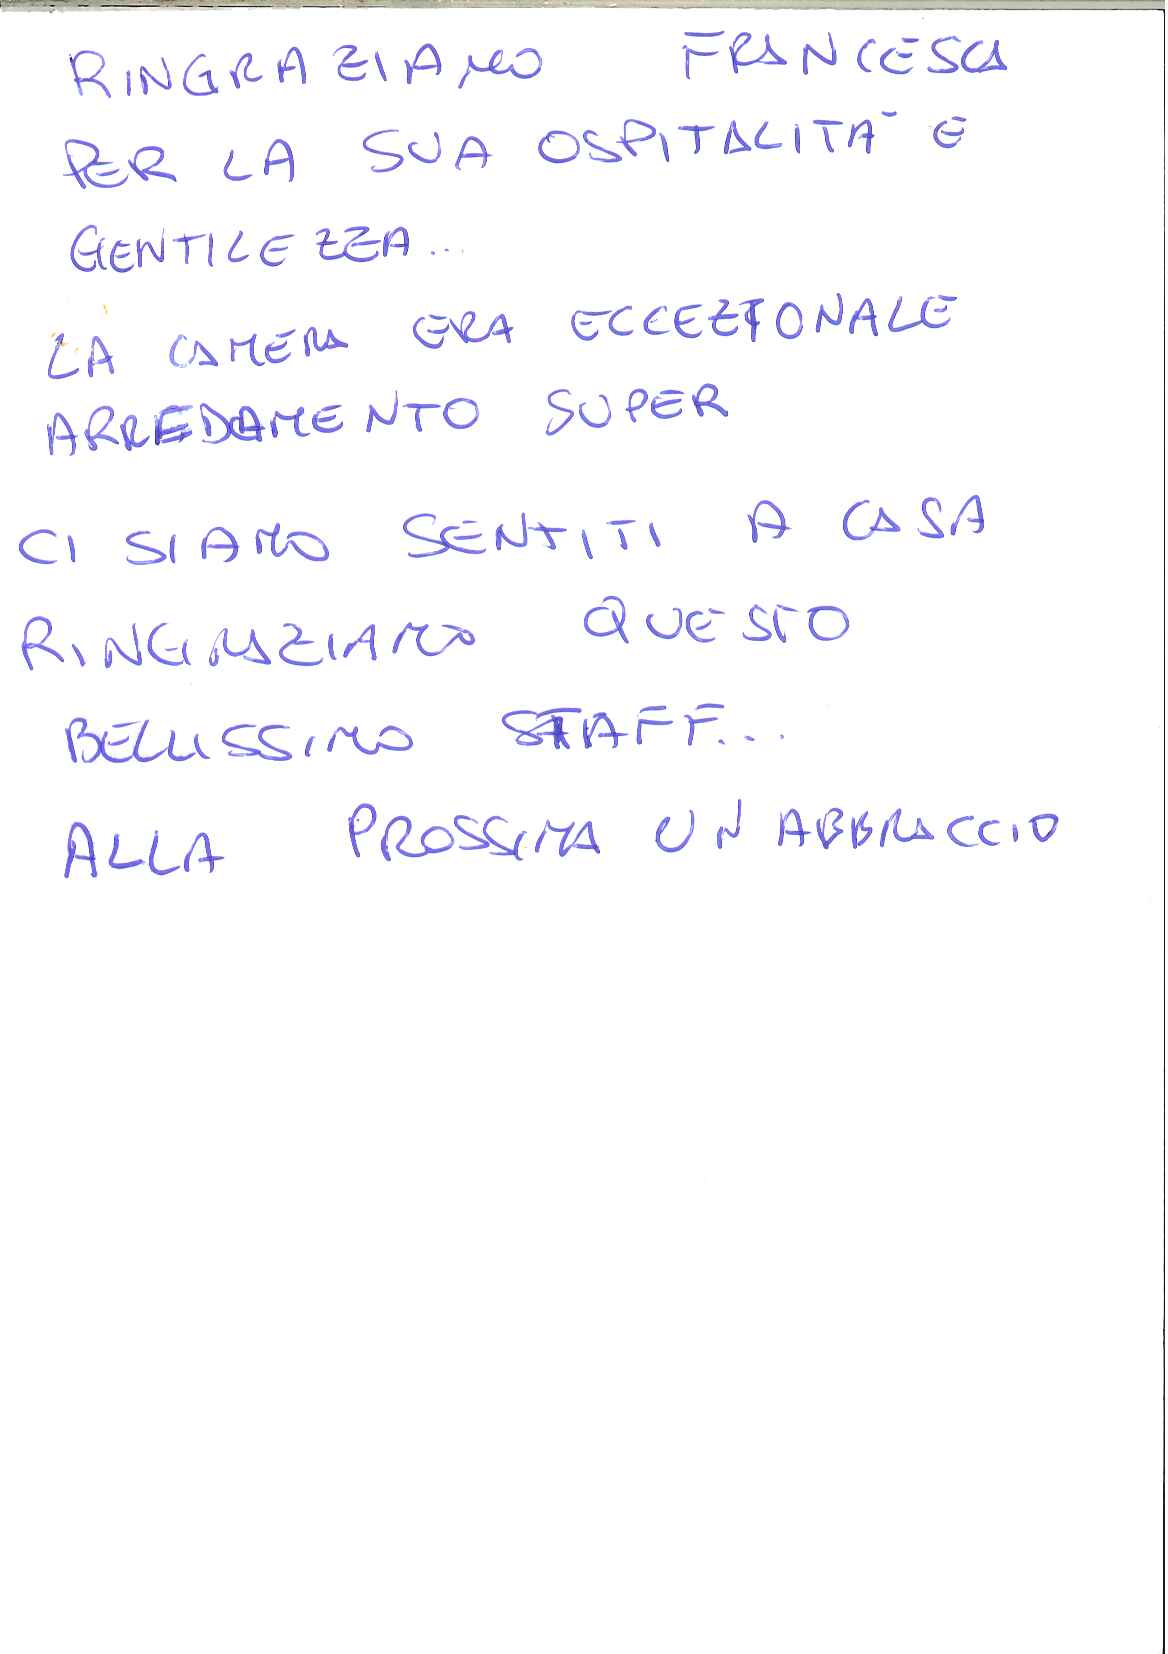 RINGRAZIAMO FRANCESCA
PER LA SUA OSPITALITA' E
GENTILEZZA...
LA CAMERA ERA ECCEZIONALE
ARREDAMENTO SUPER
CI SIAMO SENTITI A CASA
RINGRAZIAMO QUESTO
BELLISSIMO STAFF...
ALLA PROSSIMA UN ABBRACCIO